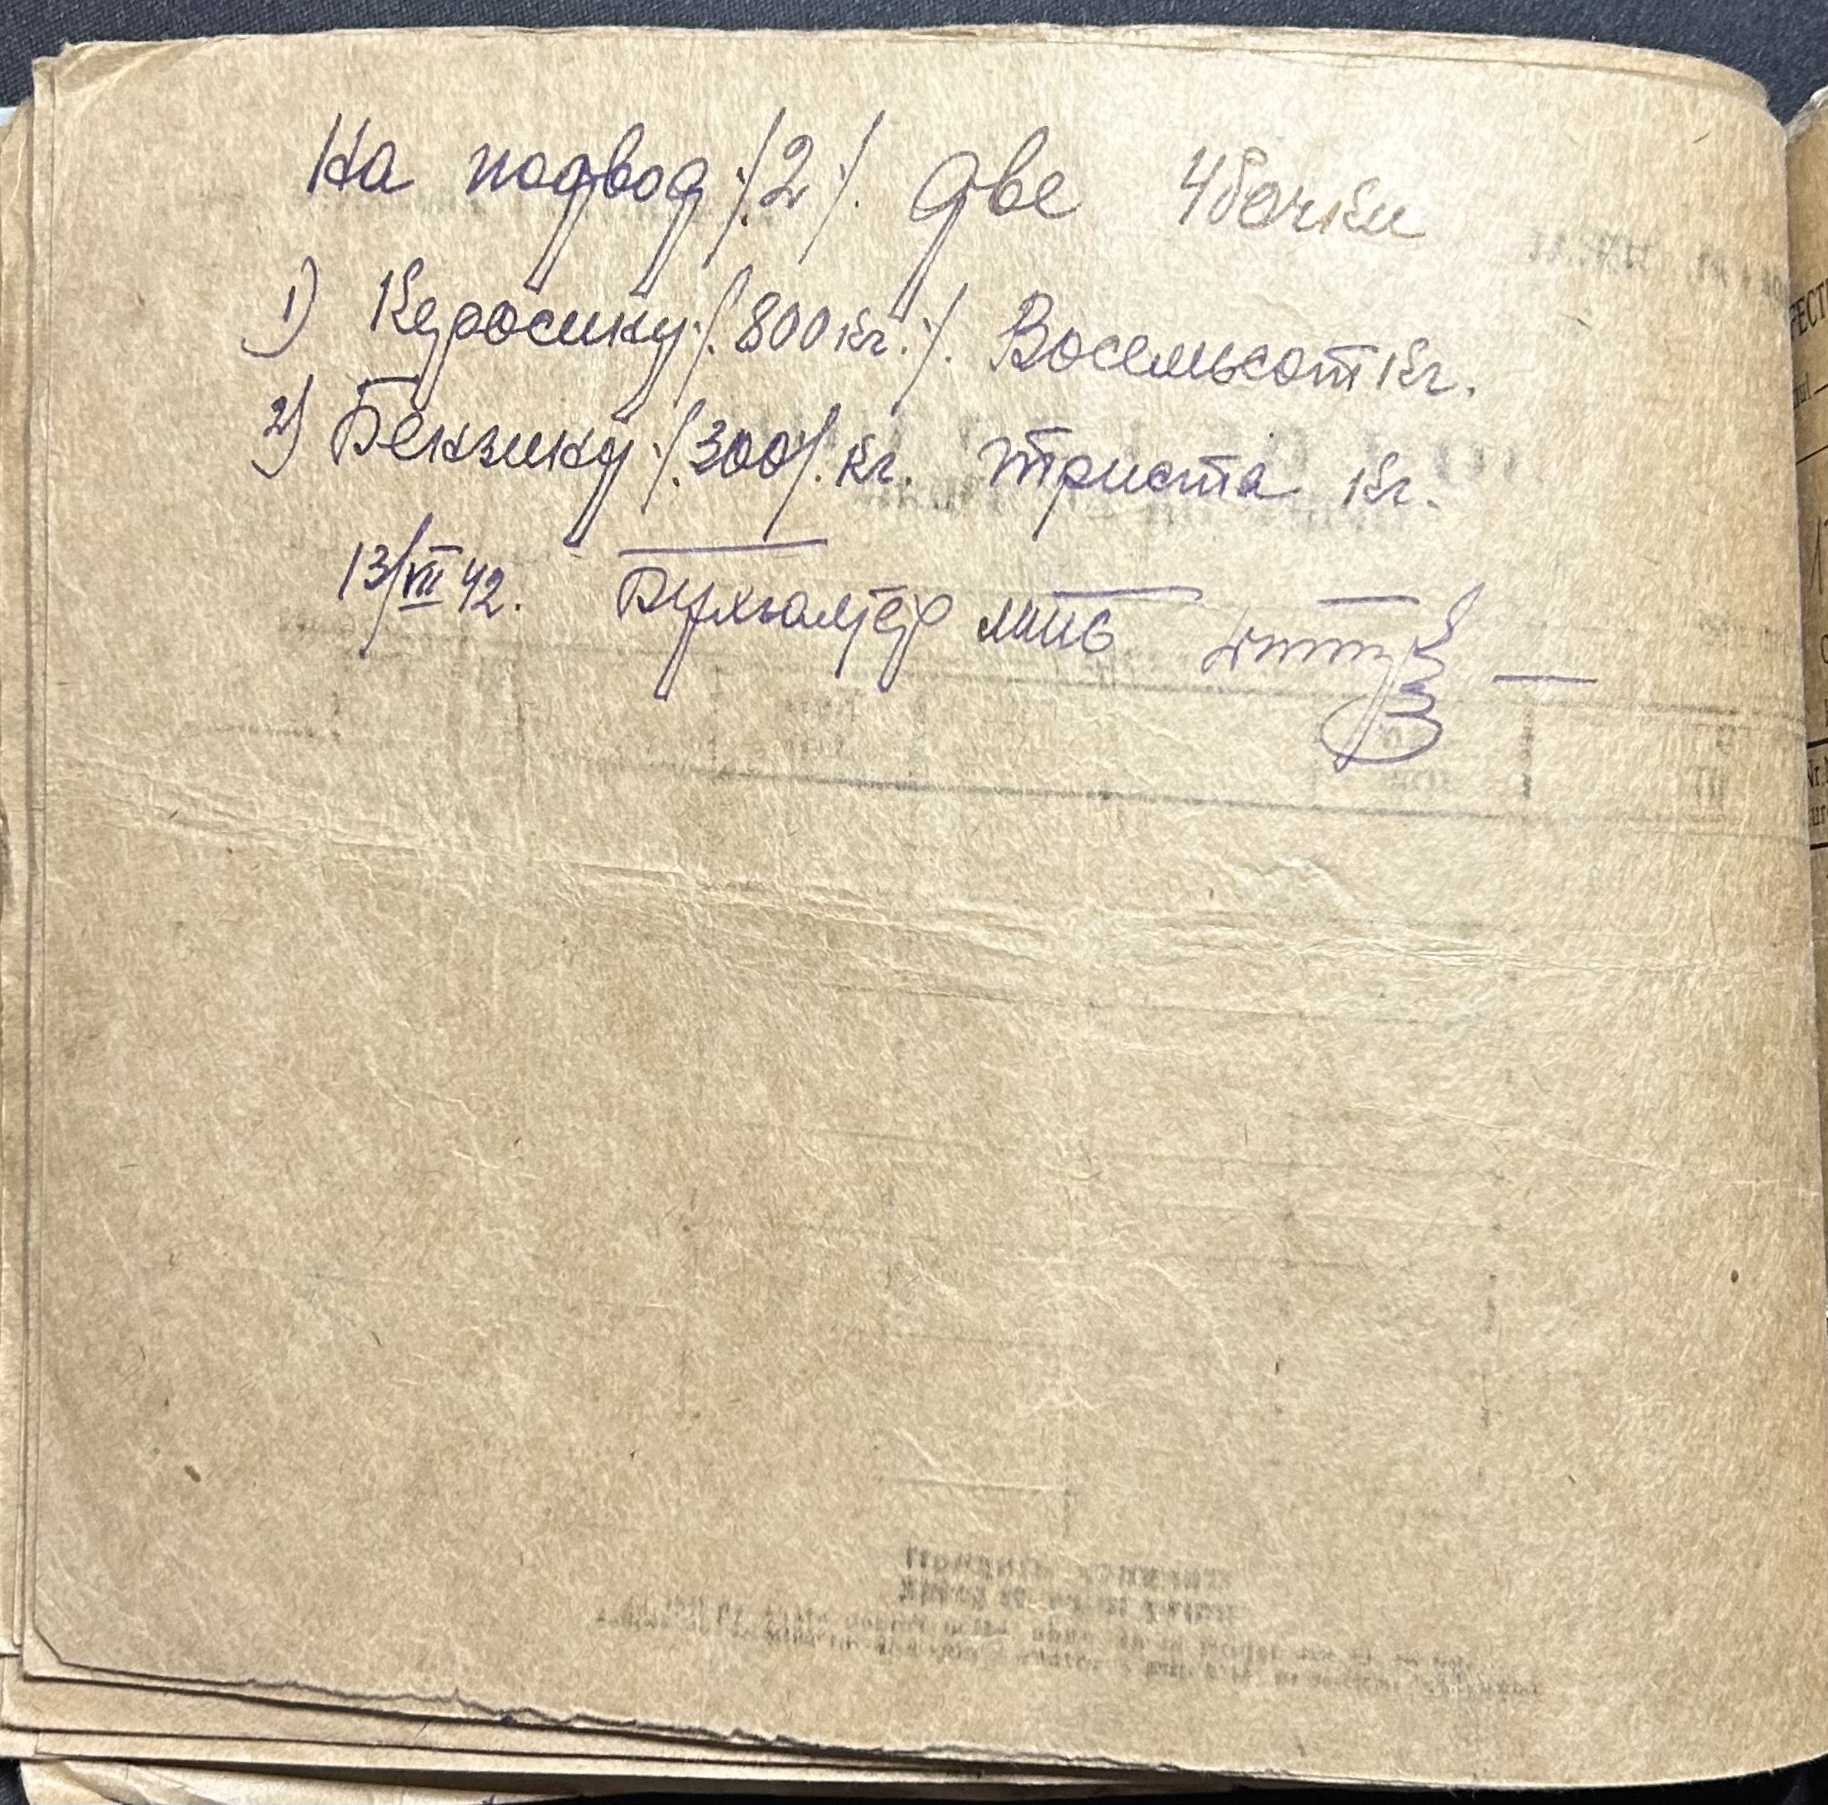 На подвод ./2/. Две 4 бочки
1) Керосину ./800 кг./. Восемьсот кг.
2) Бензину ./300/. кг. триста кг.
13/VII 42. Бухгалтер